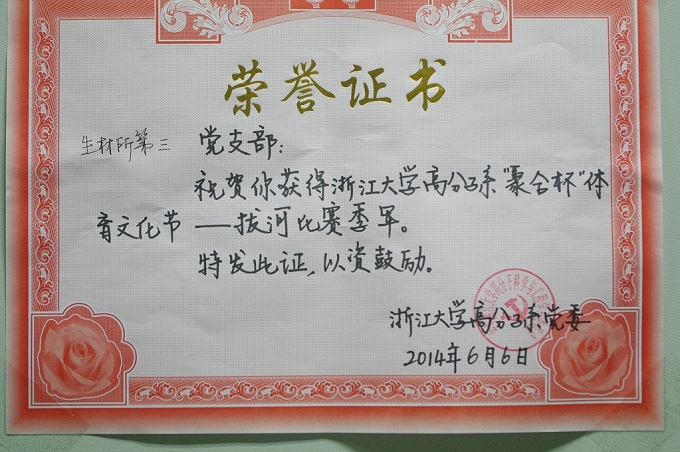 荣誉证书
生材所第三 党支部：
祝贺你获得浙江大学高分子系"聚合杯"体
育文化节——拔河比赛季军。
特发此证，以资鼓励。
浙江大学高分子系党委
2014年6月6日